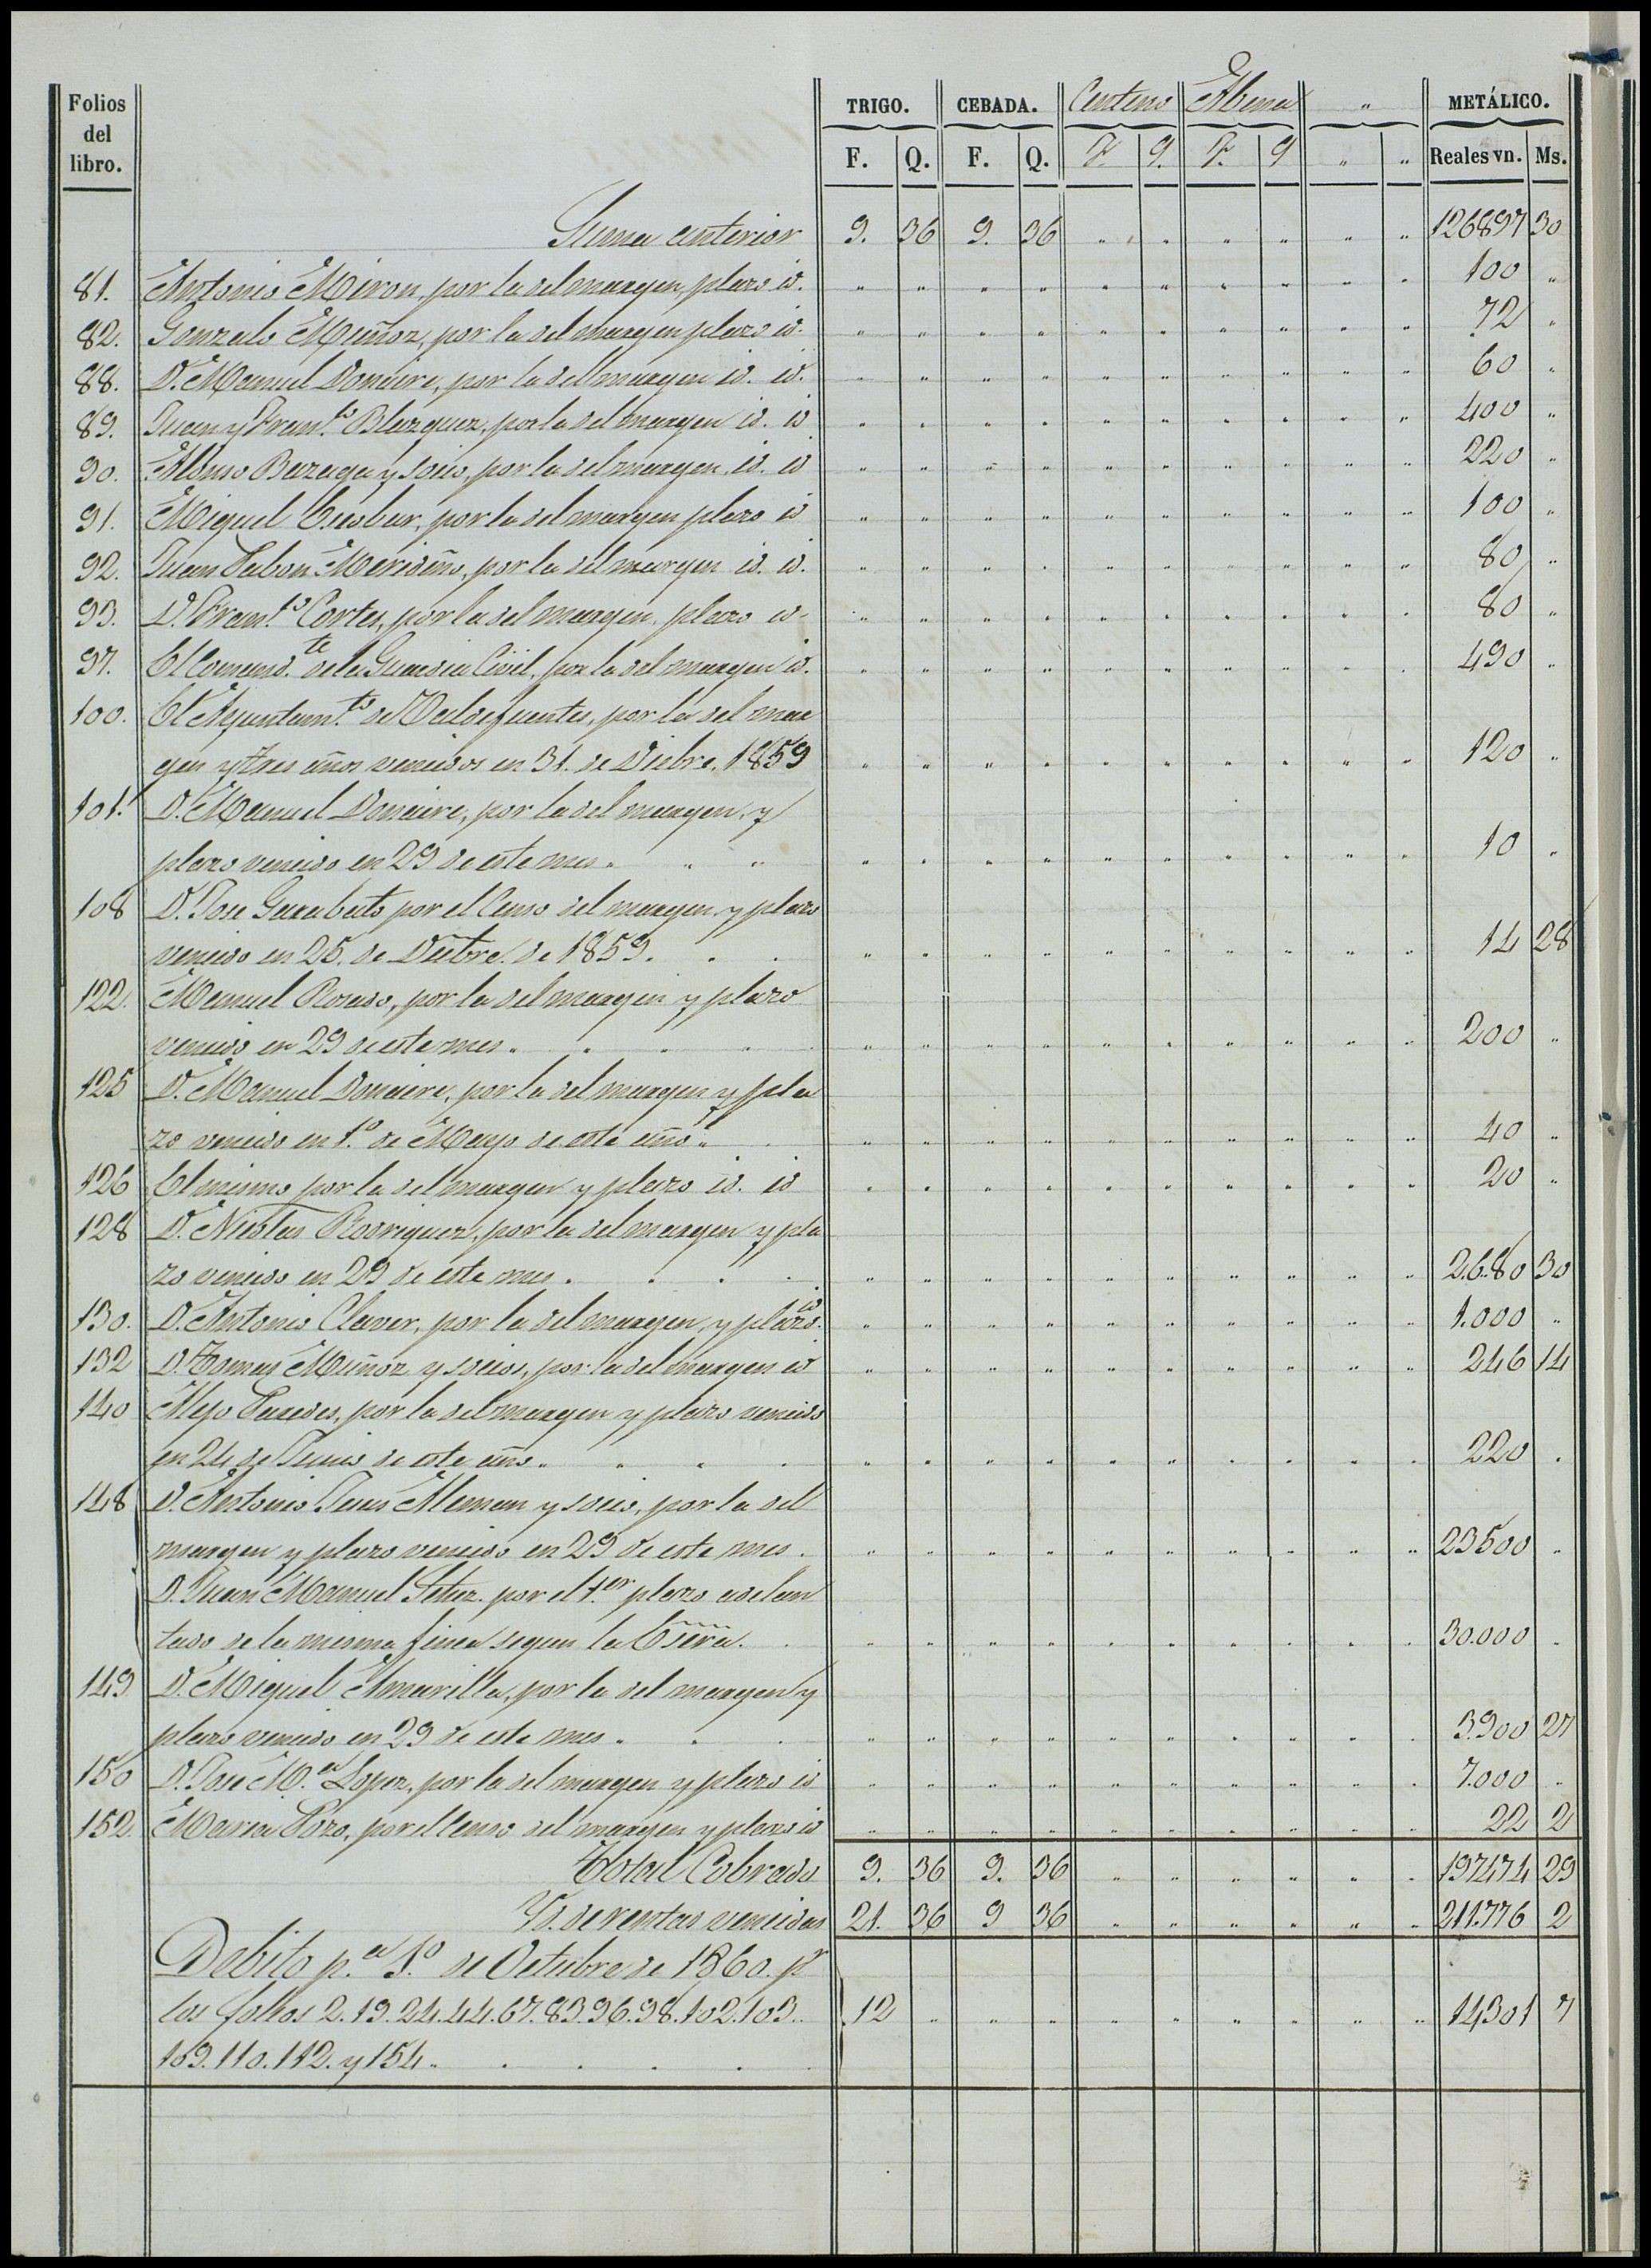 Folios del libro. TRIGO. CEBADA. Centeno Abena " METÁLICO.
F. Q. F. Q. F. Q. F. Q " " Reales vn. Ms.
Suma anterior 9. 36 9. 36 " " " " " " 126897 30
81. Antonio Miron, por la del margen, plazo id. " " " " " " " " " " 100 "
82. Gonzalo Muñoz, por la del margen plazo id. " " " " " " " " " " 72 "
88. D. Manuel Donaire, por la del margen id. id. " " " " " " " " " " 60 "
89. Juan y Fran.co Blazquez, por la del margen id. id " " " " " " " " " " 400 "
90. Alonso Bazaga y socio, por la del margen id. id " " " " " " " " " " 220 "
91. Miguel Escobar, por la del margen plazo id " " " " " " " " " " 100 "
92. Juan Pabon Merideño, por la del margen id. id. " " " " " " " " " " 80 "
93. D. Fran.co Cortes, por la del margen, plazo id. " " " " " " " " " " 80 "
97. El Comand.te de la Guardia Civil, por la del margen id. " " " " " " " " " " 490 "
100. El Ayuntam.to de Valdefuentes, por la del mar
gen y tres años vencidos en 31. de Dicbre. 1859 " " " " " " " " " " 120 "
101. D. Manuel Donaire, por la del margen, y
plazo vencido en 29 de este mes " " " " " " " " " " " " " 10 "
108 D. Jose Garabato por el Censo del margen y plazo
vencido en 25. de Dicbre. de 1859. . . " " " " " " " " " " 14 28
122. Manuel Rosado, por la del margen y plazo
vencido en 29 de este mes. . . . . " " " " " " " " " " 200 "
125 D. Manuel Donaire, por la del margen y pla
zo vencido en 1.º de Mayo de este año " " " " " " " " " " " 40 "
126 El mismo por la del margen y plazo id. id " " " " " " " " " " 20 "
128 D. Nicolas Rodriguez, por la del margen y pla
zo vencido en 29 de este mes. . . . " " " " " " " " " " 2680 30
130. D. Antonio Claver, por la del margen, y plazo id " " " " " " " " " " 1.000 "
132 D. Tomas Muñoz y socios, por la del margen id " " " " " " " " " " 246 14
140 Alejo Paredes, por la del margen y plazo vencido
en 24 de Junio de este año. " " . " " " " " " " " " " 220 .
148 D. Antonio Juan Aleman y socio, por la del
margen y plazo vencido en 29 de este mes. " " " " " " " " " " 23500 "
D. Juan Manuel Schez. por el 1.er plazo adelan
tado de la misma finca segun la Escra. . " " " " " " " " " " 30.000 "
149 D. Miguel Amarilla, por la del margen y
plazo vencido en 29 de este mes. . . " " " " " " " " " " 3.900 27
150 D. Jose M.a Lopez, por la del margen y plazo id " " " " " " " " " " 7.000 "
152. Maria Pozo, por el censo del margen y plazo id " " " " " " " " " " 22 2
Total Cobrado 9. 36 9. 36 " " " " " " 197474 29
Yd. de rentas vencidas 21. 36 9 36 " " " " " " 211.776 2
Debito p.a 1.º de Octubre de 1860. p.r
los folios 2.19.24.44.67.83.96.98.102.103. 12 " " " " " " " " " 14301 7
109.110.112. y 154. . . . .